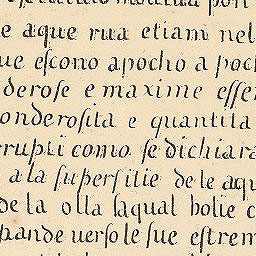 e aque rua etiam nel
ue escono apocho a poch
derose e maxime esse
onderosita e quantita
rrupti como se dichiara
a la superfitie de le aqu
de la olla laqual bolie c
pande verso le sue estrem